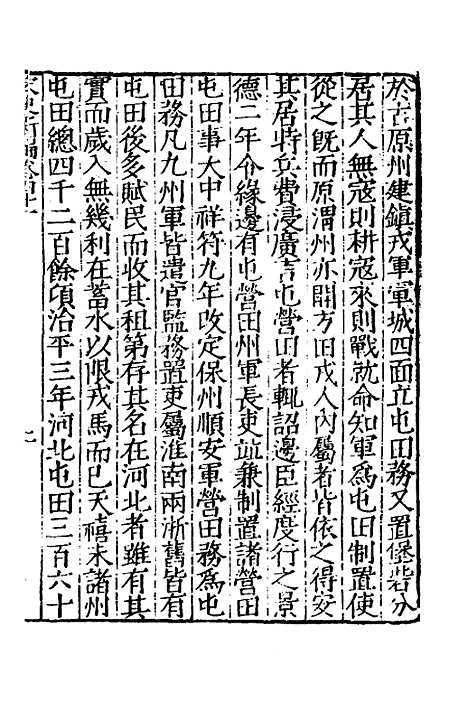 於古原州建鎮戎軍軍城四面立屯田務又置堡砦分
居其人無寇則耕寇來則戰就命知軍爲屯田制置使
從之旣而原渭州亦開方田戎人內屬者皆依之得安
其居時兵費浸廣言屯營田者輒詔邊臣經度行之景
德二年令緣邊有屯營田州軍長吏並兼制置諸營田
屯田事大中祥符九年改定保州順安軍營田務爲屯
田務凡九州軍皆遣官監務置吏屬淮南兩浙舊皆有
屯田後多賦民而收其租第存其名在河北者雖有其
實而歲入無幾利在蓄水以限戎馬而已天禧末諸州
屯田總四千二百餘頃治平三年河北屯田三百六十
宋史新編卷四十一
七